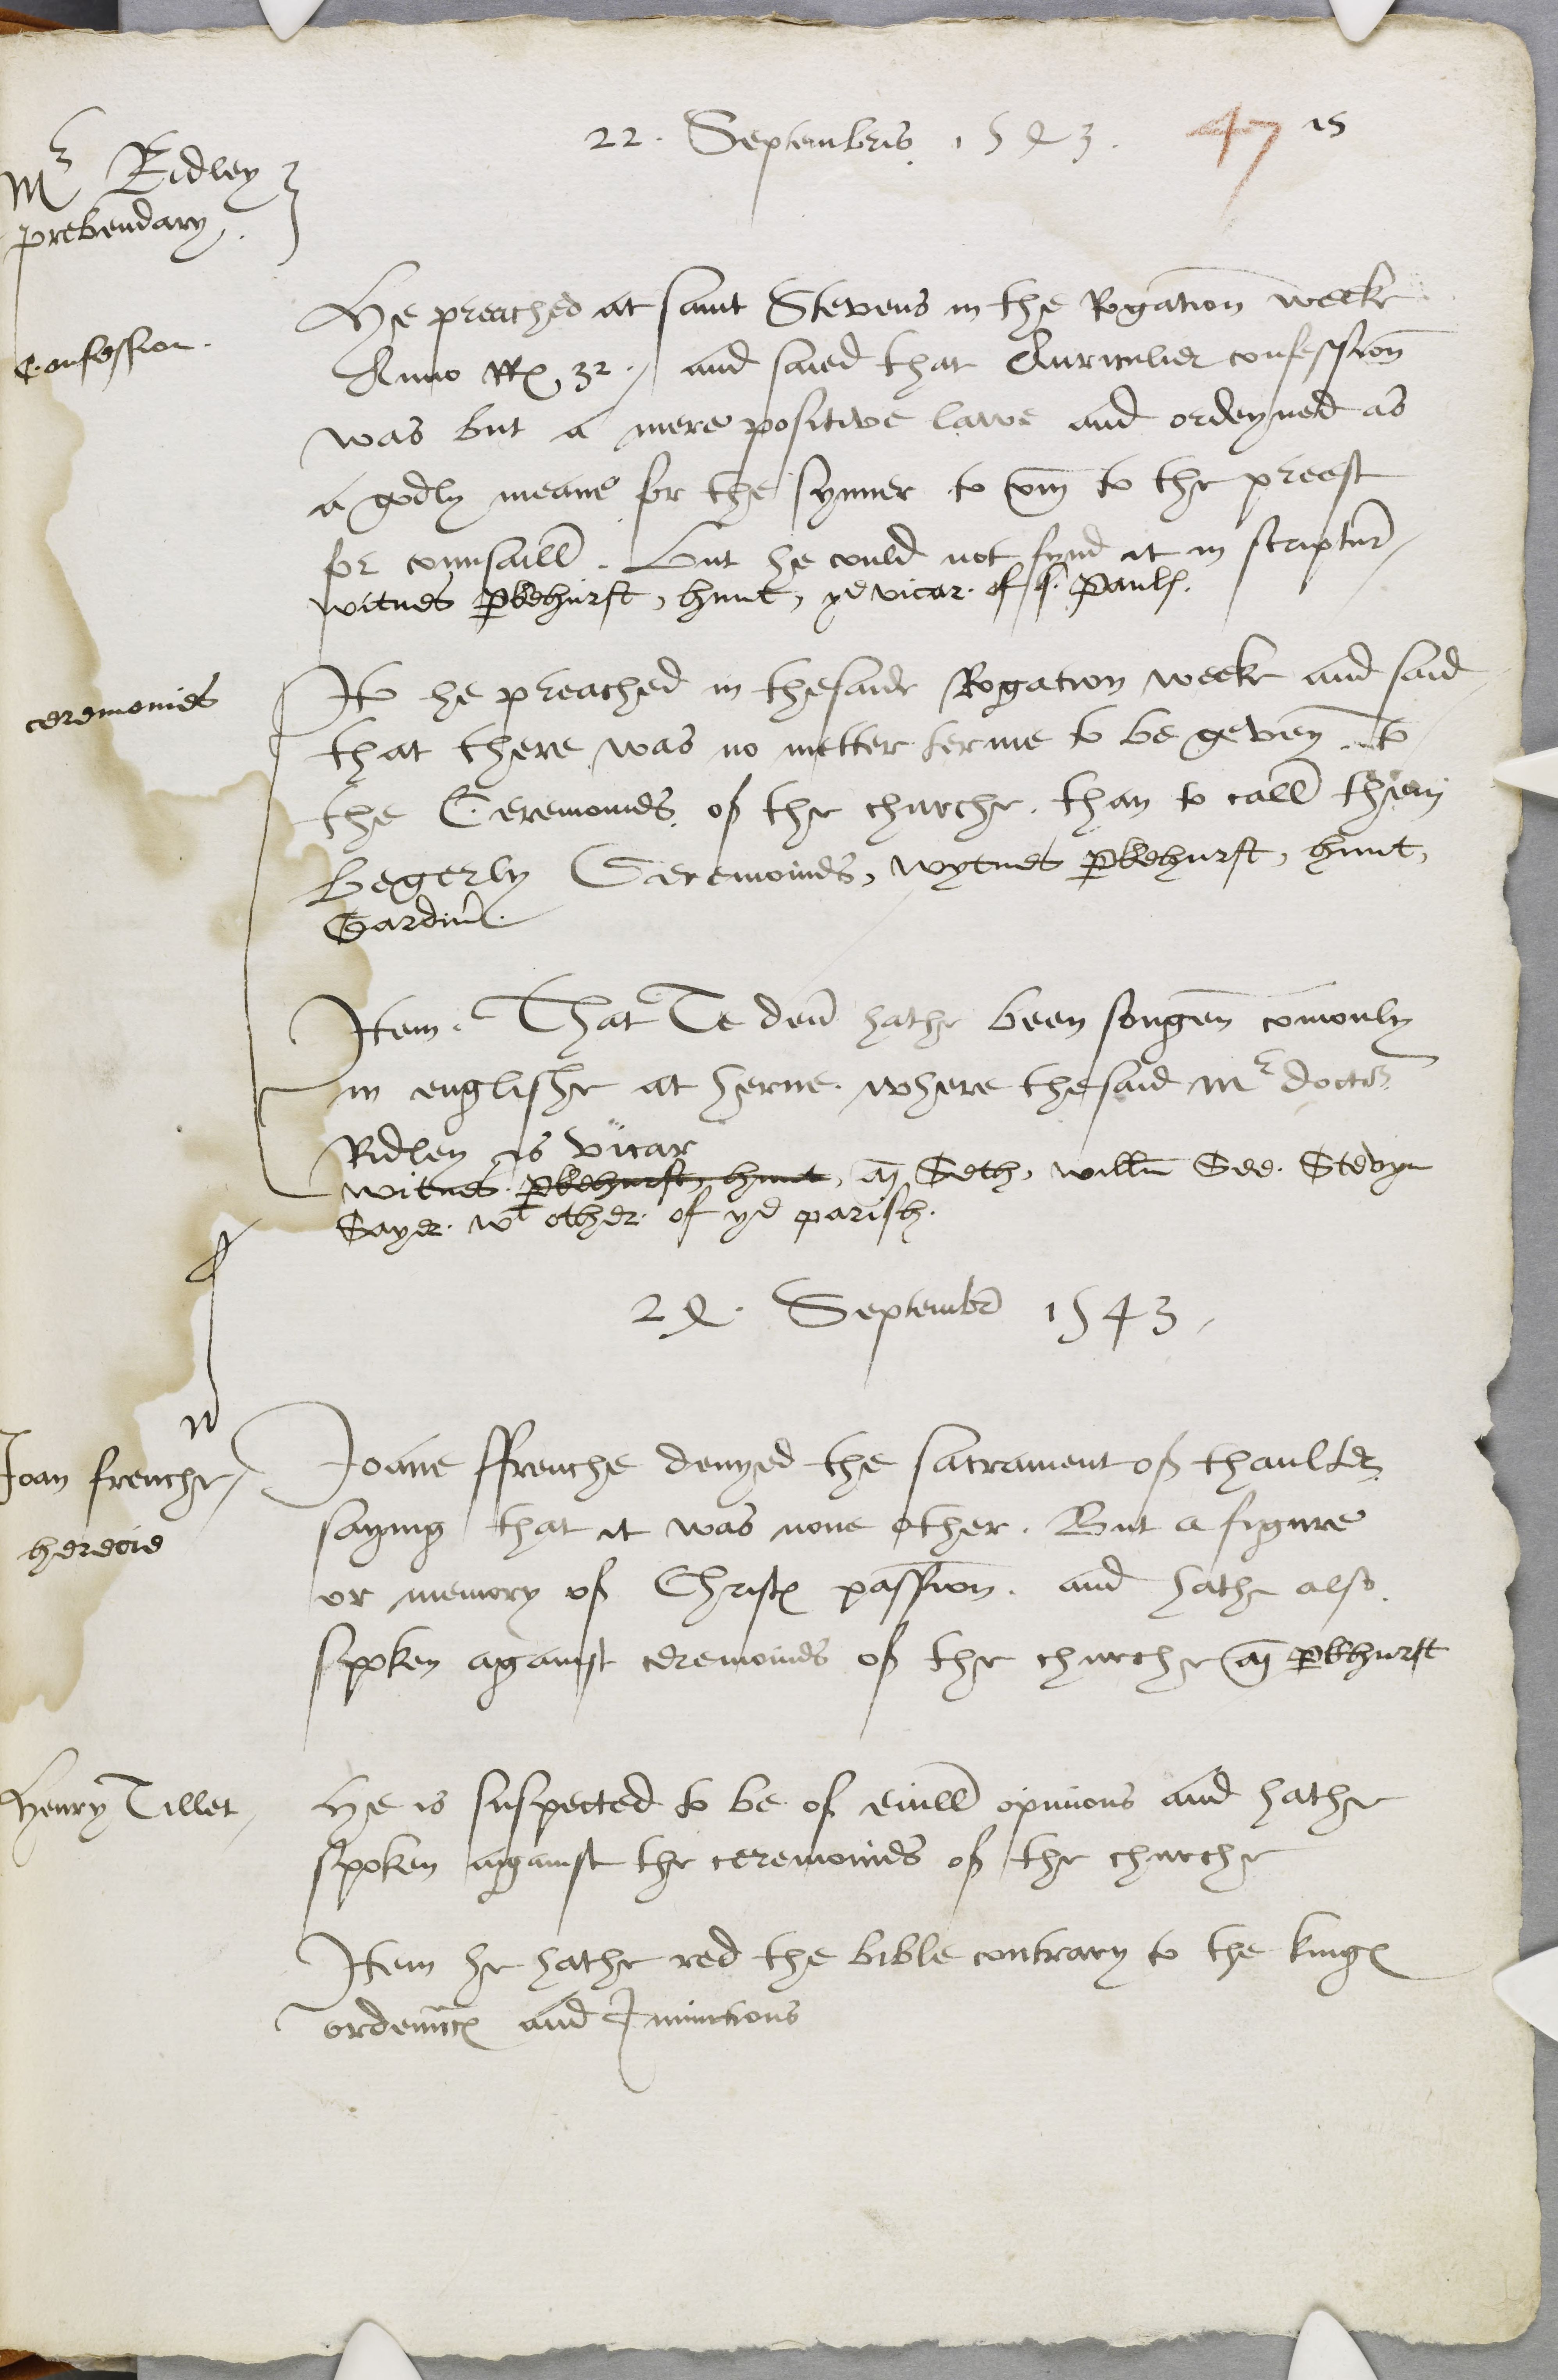 22. Septembris 1543. 47 15
Mr Ridley
prebendary.
He preached at saint Stevens in the Rogation weeke
Confession.
Anno Rx 32. and saied that Auriculer confession
was but a mere positive lawe and ordeyned as
a godly meane for the synner to com to the preest
for counsaill. But he could not fynd it in scriptur
witnes pkehurst, hunt, ye vicar of S. Pauls.
ceremonies
Itm he preached in thesaide Rogation weeke and said
that there was no metter terme to be geven to
the Ceremonies of the churche than to call them
begerly Ceremonies, wytnes pkehurst, hunt,
Gardiner.
Item. That Te deum hathe been songen comonly
in englishe at herne where thesaid Mr doctor
Ridley is vicar
witnes pkehurst, hunt, Seth, willm Stevyn
Sayer. wt other of ye parish.
24. Septembr 1543
Joan frenche
Joane ffrenche denyed the sacrament of thaulter
saying that it was none other. But a figure
heresie
or memory of Christx passion. and hathe also
spoken against ceremonies of the churche pkhurst
Henry Tillet
He is suspected to be of evill opinions and hathe
spoken against the ceremonies of the churche
Item he hathe red the bible contrary to the kings
ordenncs and Iniunctions